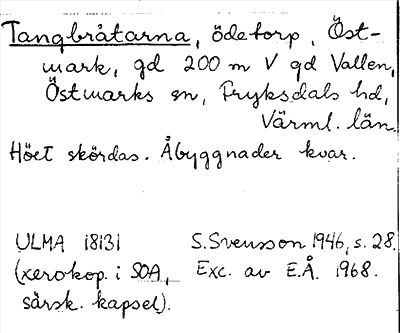 Tangbråtarna, ödetorp, Öst-
mark, gd 200 m V gd Vallen,
Östmarks sn, Fryksdals hd,
Värml. län.
Höet skördas. Åbyggnader kvar.
ULMA 18131 S. Svensson 1946, s. 28.
(xerokop. i SOA, Exc. av E.Å. 1968.
särsk. kapsel).